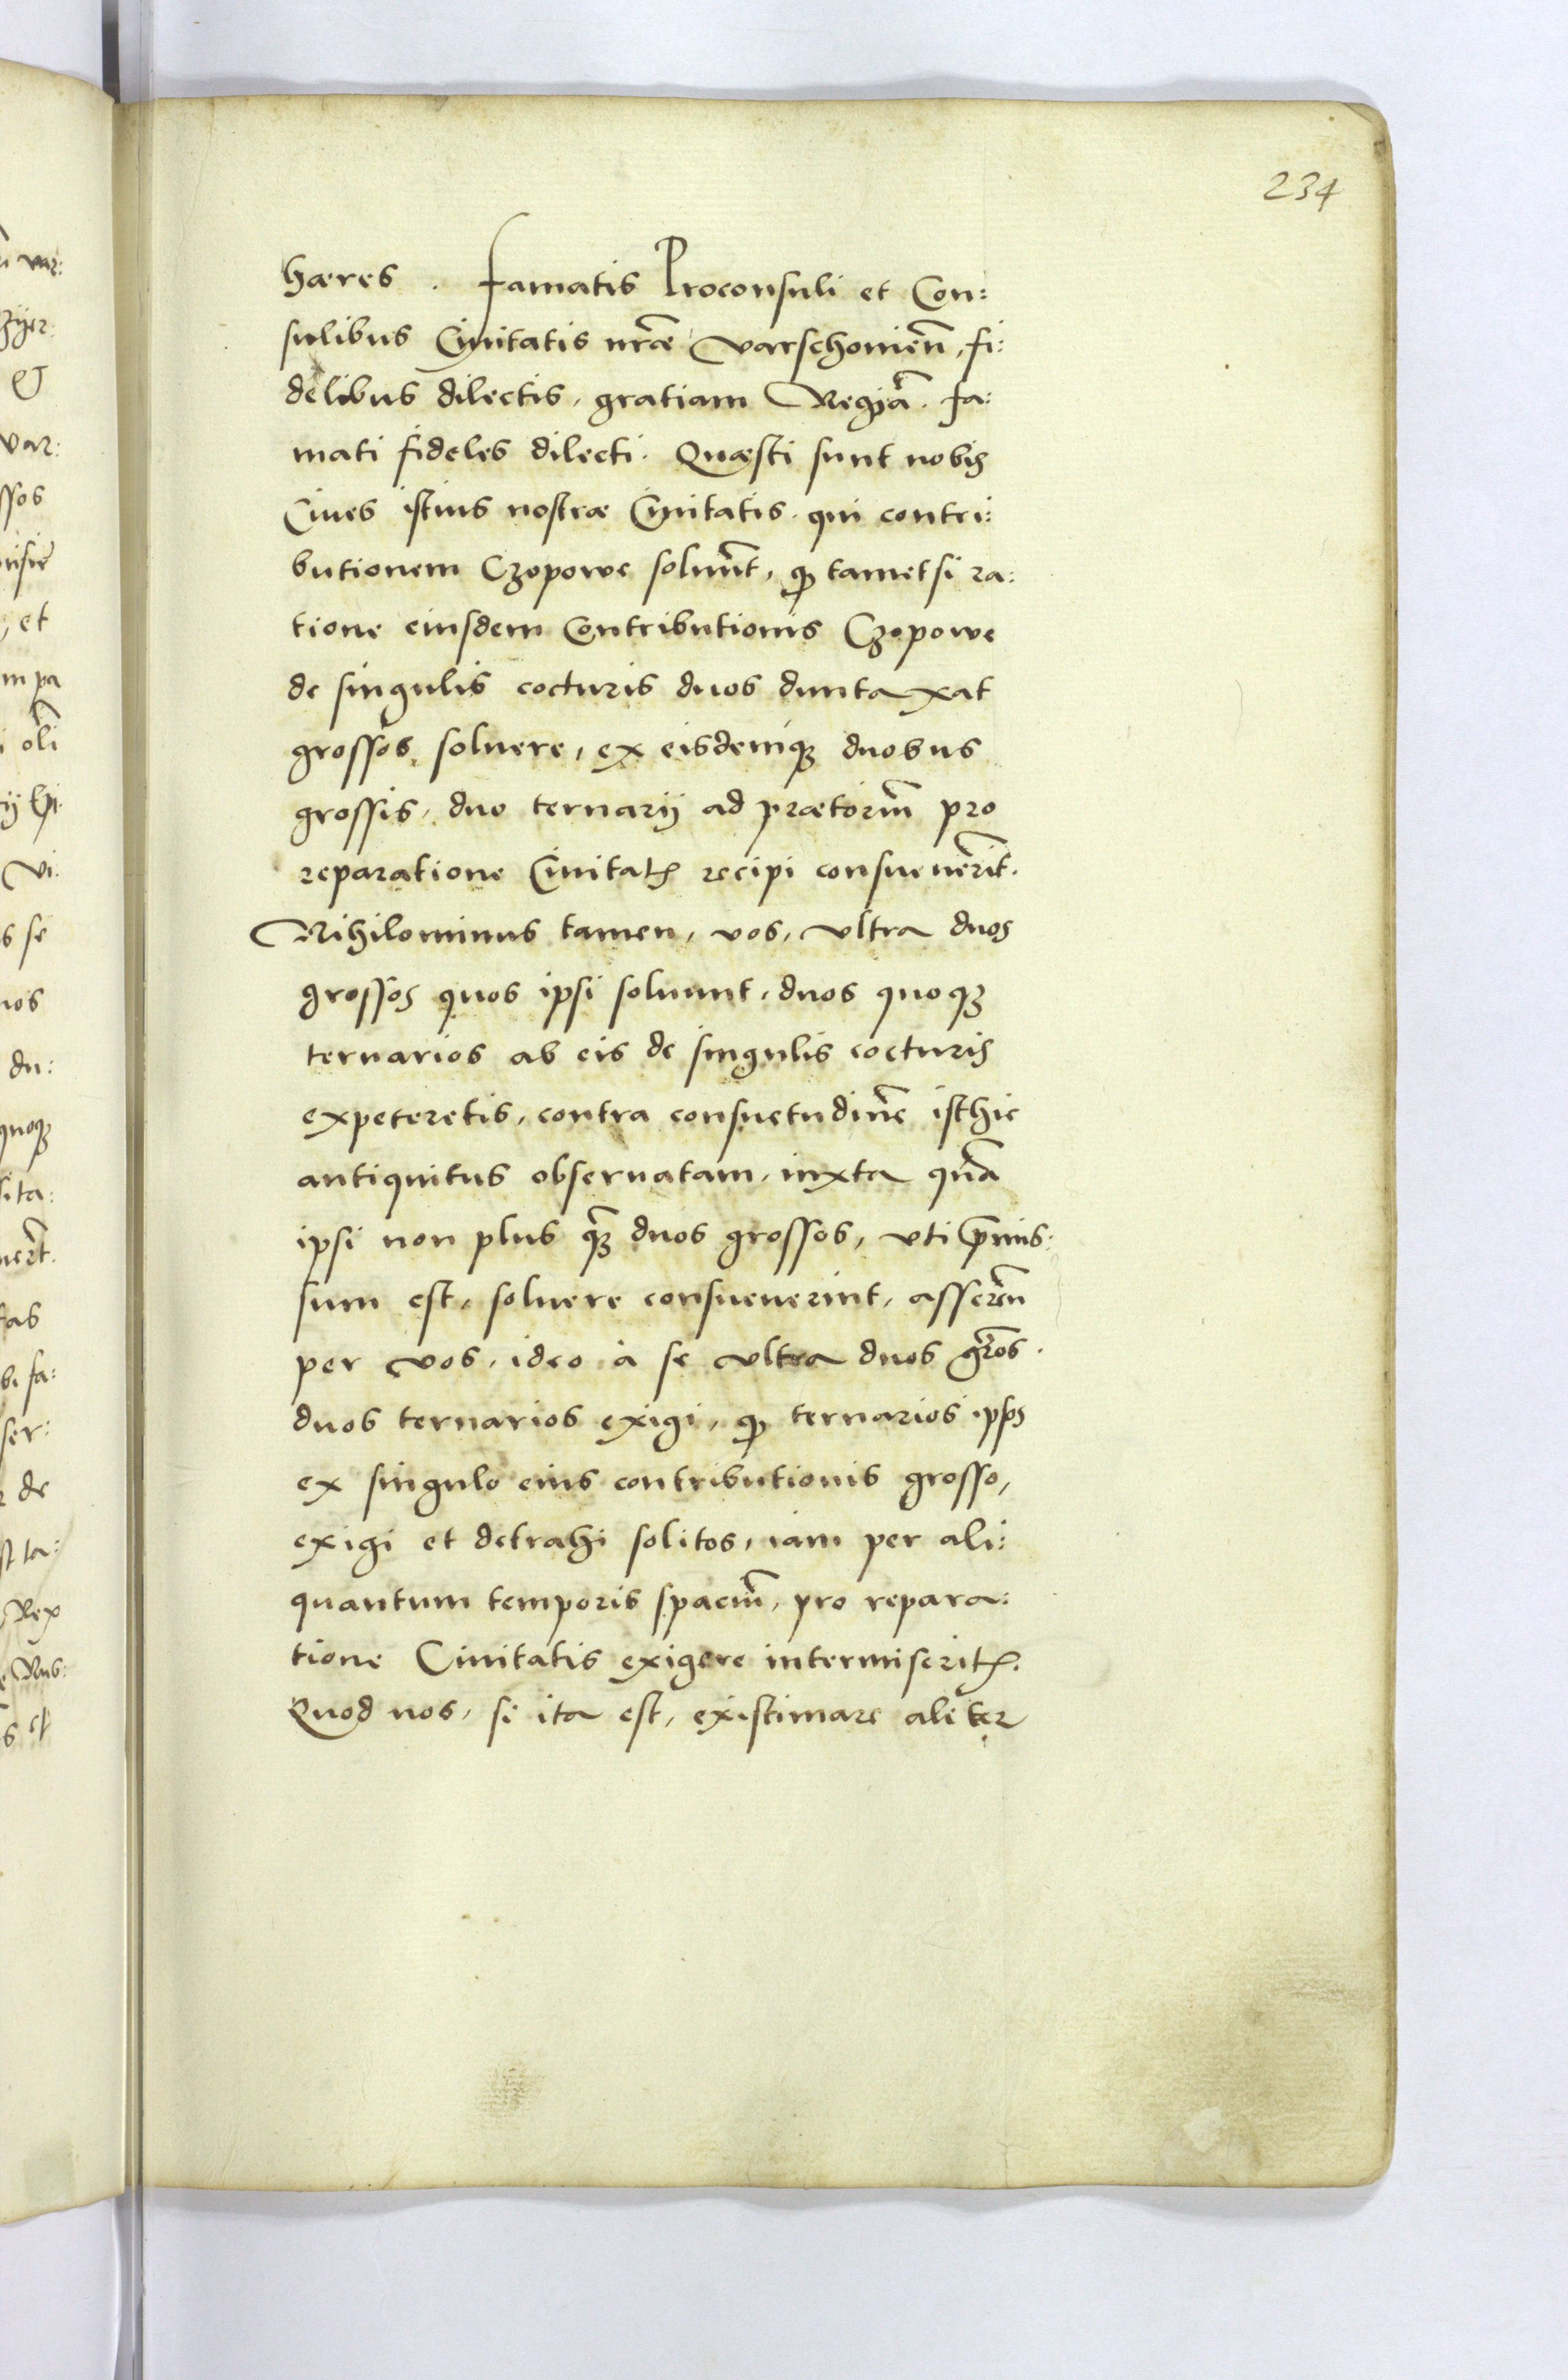 234
hæres. Famatis Proconsuli et Con:
sulibus Ciuitatis nr̃æ Varschouień, fi:
delibus dilectis, gratiam Regiã. Fa:
mati fideles dilecti. Quæsti sunt nobis
Ciues istius nostræ Ciuitatis, qui contri:
butionem Czopowe soluũt, ꝙ tametsi ra:
tione eiusdem Contributionis Czopowe
de singulis cocturis duos duntaxat
grossos soluere, ex eisdemq́ꝫ duobus
grossis, duo ternarij ad prætoriũ pro
reparatione Ciuitatꝭ recipi consueuerĩt.
Nihilominus tamen, vos, vltra duos
grossos quos ipsi soluunt, duos quoqꝫ
ternarios ab eis de singulis cocturis
expeteretis, contra consuetudinẽ isthic
antiquitus obseruatam, iuxta quã
ipsi non plus q̃ꝫ duos grossos, vti p̃mis:
sum est, soluere consueuerint, asserẽn
per vos, ideo à se vltra duos gr̃os.
duos ternarios exigi, ꝙ ternarios ip̃os
ex singulo eius contributionis grosso,
exigi et detrahi solitos, iam per ali:
quantum temporis spaciũ, pro repara:
tione Ciuitatis exigere intermiseritꝭ.
Quod nos, si ita est, existimare aliter